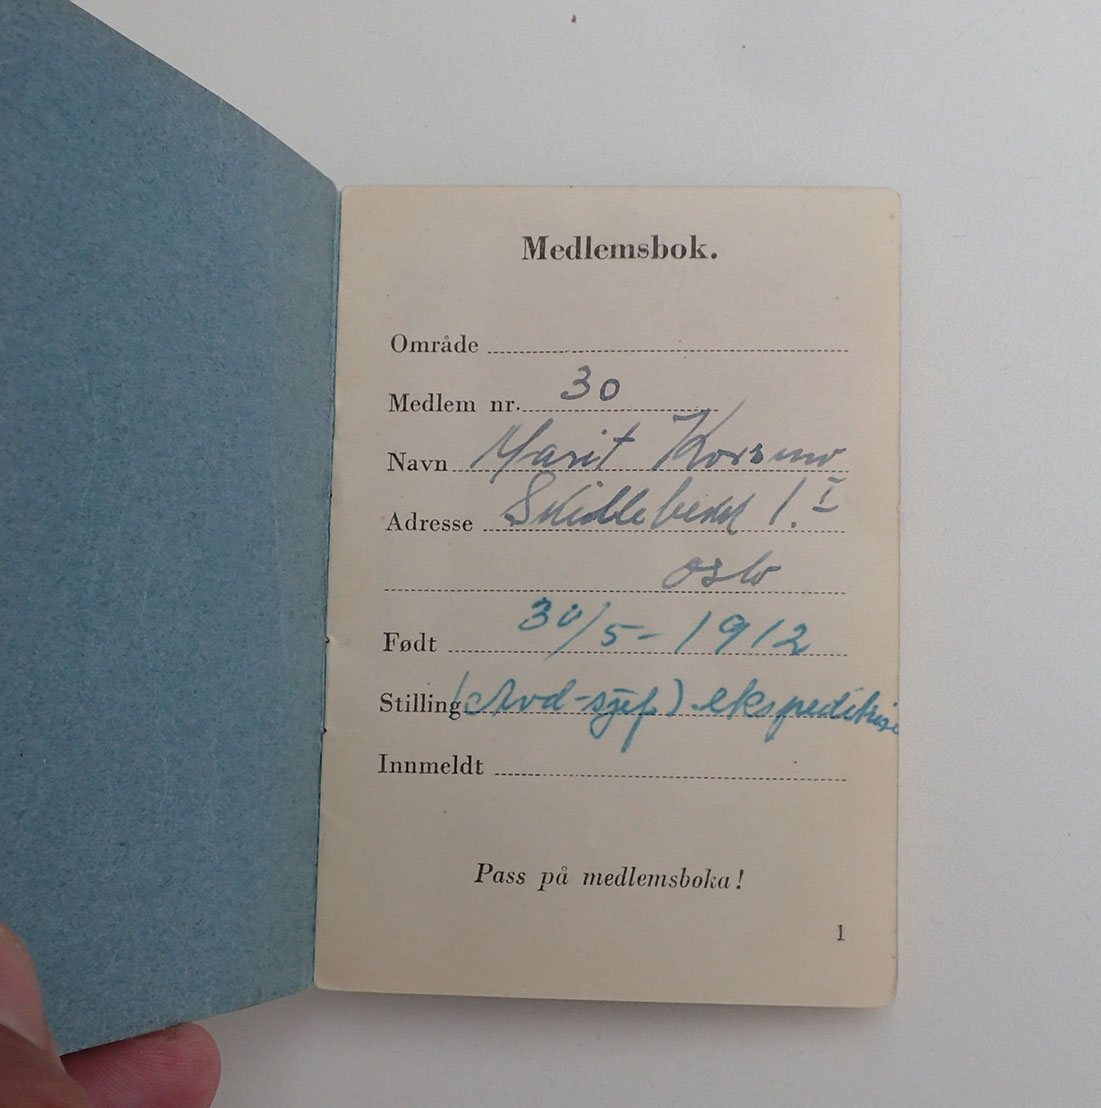 Medlemsbok.
Område
Medlem nr. 30
Navn Marit Korsmo
Adresse 1. I
Oslo
Født 30/5-1912
Stilling (Avd-sjef) ekspeditrise
Innmeldt
Pass på medlemsboka!
1